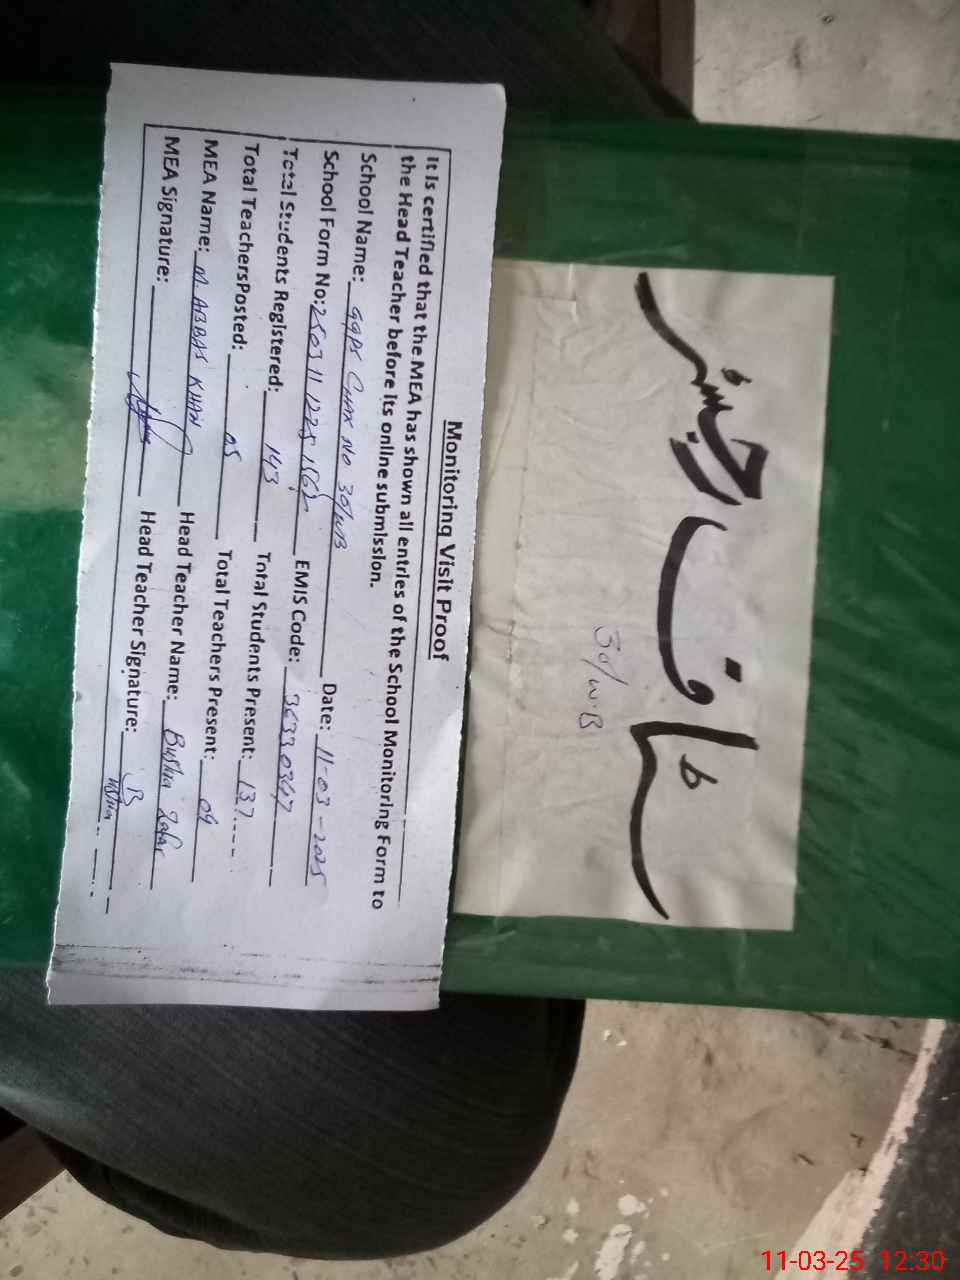 Monitoring Visit Proof
It is certified that the MEA has shown all entries of the School Monitoring Form to
the Head Teacher before its online submission.
School Name: GGPS Chak No 30/WB Date: 11-03-2025
School Form No: EMIS Code: 36330347
Total Students Registered: 143 Total Students Present: 137
Total TeachersPosted: 05 Total Teachers Present: 04
MEA Name: M. ABBAS KHAN Head Teacher Name: Bushra Zafar
MEA Signature: Head Teacher Signature: Bushra
سٹاف رجسٹر
30/W.B
11-03-25 12:30